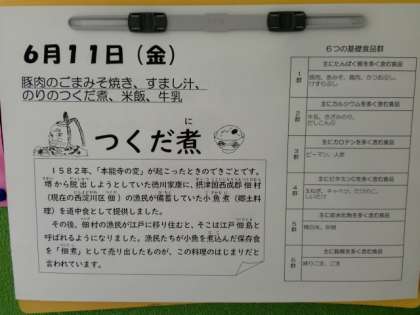 6月11日（金）
豚肉のごまみそ焼き、すまし汁、
のりのつくだ煮、米飯、牛乳
つくだ煮
に
１５８２年、「本能寺の変」が起こったときのできごとです。
堺から脱出しようとしていた徳川家康に、摂津国西成郡佃村
（現在の西淀川区佃）の漁民が備蓄していた小魚煮（郷土料
理）を道中食として提供しました。
その後、佃村の漁民が江戸に移り住むと、そこは江戸佃島と
呼ばれるようになりました。漁民たちが小魚を煮込んだ保存食
を「佃煮」として売り出したものが、この料理のはじまりだと
言われています。
６つの基礎食品群
1群
主にたんぱく質を多く含む食品
豚肉、赤みそ、鶏肉、かつおぶし、
けずりぶし
2群
主にカルシウムを多く含む食品
牛乳、きざみのり、
だしこんぶ
3群
主にカロテンを多く含む食品
ピーマン、人参
4群
主にビタミンCを多く含む食品
玉ねぎ、キャベツ、えのきたけ、
しいたけ
5群
主に炭水化物を多く含む食品
精白米、砂糖
6群
主に脂質を多く含む食品
練りごま、ごま